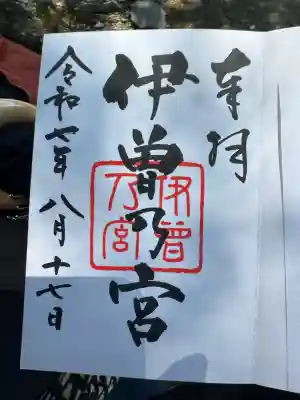 奉拝
伊曽乃宮
伊曽乃宮
令和七年八月十七日